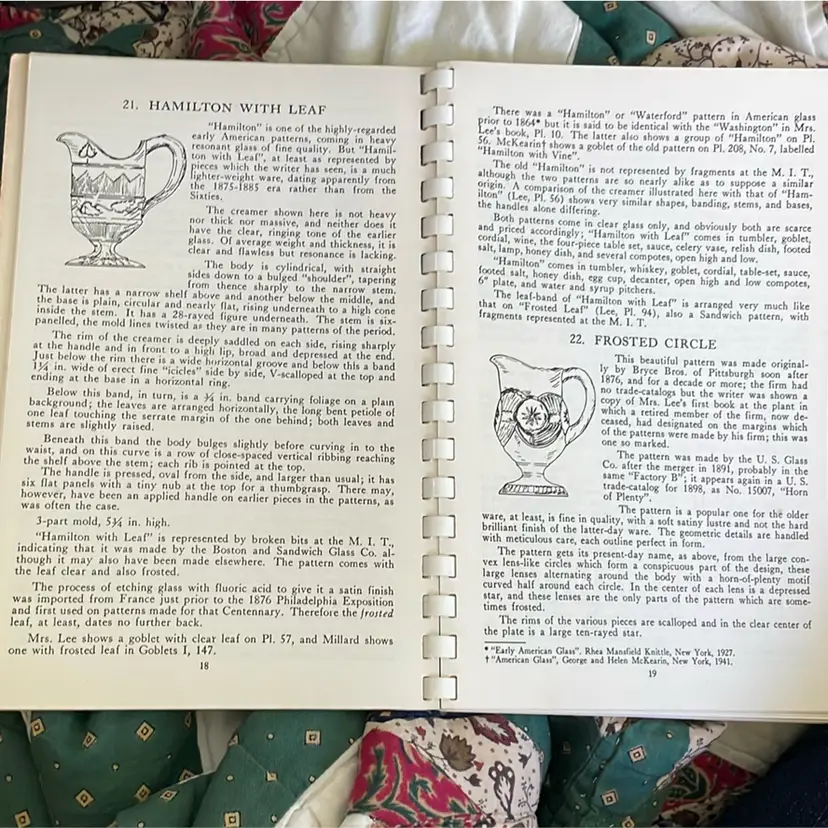 21. HAMILTON WITH LEAF
"Hamilton" is one of the highly-regarded
early American patterns, coming in heavy
resonant glass of fine quality. But "Hamil-
ton with Leaf", at least as represented by
pieces which the writer has seen, is a much
lighter-weight ware, dating apparently from
the 1875-1885 era rather than from the
Sixties.
The creamer shown here is not heavy
nor thick nor massive, and neither does it
have the clear, ringing tone of the earlier
glass. Of average weight and thickness, it is
clear and flawless but resonance is lacking.
The body is cylindrical, with straight
sides down to a bulged "shoulder", tapering
from thence sharply to the narrow stem.
The latter has a narrow shelf above and another below the middle, and
the base is plain, circular and nearly flat, rising underneath to a high cone
inside the stem. It has a 28-rayed figure underneath. The stem is six-
panelled, the mold lines twisted as they are in many patterns of the period.
The rim of the creamer is deeply saddled on each side, rising sharply
at the handle and in front to a high lip, broad and depressed at the end.
Just below the rim there is a wide horizontal groove and below this a band
1¼ in. wide of erect fine "icicles" side by side, V-scalloped at the top and
ending at the base in a horizontal ring.
Below this band, in turn, is a ¾ in. band carrying foliage on a plain
background; the leaves are arranged horizontally, the long bent petiole of
one leaf touching the serrate margin of the one behind; both leaves and
stems are slightly raised.
Beneath this band the body bulges slightly before curving in to the
waist, and on this curve is a row of close-spaced vertical ribbing reaching
the shelf above the stem; each rib is pointed at the top.
The handle is pressed, oval from the side, and larger than usual; it has
six flat panels with a tiny nub at the top for a thumbgrasp. There may,
however, have been an applied handle on earlier pieces in the patterns, as
was often the case.
3-part mold, 5¾ in. high.
"Hamilton with Leaf" is represented by broken bits at the M. I. T.,
indicating that it was made by the Boston and Sandwich Glass Co. al-
though it may also have been made elsewhere. The pattern comes with
the leaf clear and also frosted.
The process of etching glass with fluoric acid to give it a satin finish
was imported from France just prior to the 1876 Philadelphia Exposition
and first used on patterns made for that Centennary. Therefore the frosted
leaf, at least, dates no further back.
Mrs. Lee shows a goblet with clear leaf on Pl. 57, and Millard shows
one with frosted leaf in Goblets I, 147.
18
There was a "Hamilton" or "Waterford" pattern in American glass
prior to 1864* but it is said to be identical with the "Washington" in Mrs.
Lee's book, Pl. 10. The latter also shows a group of "Hamilton" on Pl.
56. McKearin† shows a goblet of the old pattern on Pl. 208, No. 7, labelled
"Hamilton with Vine".
The old "Hamilton" is not represented by fragments at the M. I. T.,
although the two patterns are so nearly alike as to suppose a similar
origin. A comparison of the creamer illustrated here with that of "Ham-
ilton" (Lee, Pl. 56) shows very similar shapes, banding, stems, and bases,
the handles alone differing.
Both patterns come in clear glass only, and obviously both are scarce
and priced accordingly; "Hamilton with Leaf" comes in tumbler, goblet,
cordial, wine, the four-piece table set, sauce, celery vase, relish dish, footed
salt, lamp, honey dish, and several compotes, open high and low.
"Hamilton" comes in tumbler, whiskey, goblet, cordial, table-set, sauce,
footed salt, honey dish, egg cup, decanter, open high and low compotes,
6" plate, and water and syrup pitchers.
The leaf-band of "Hamilton with Leaf" is arranged very much like
that on "Frosted Leaf" (Lee, Pl. 94), also a Sandwich pattern, with
fragments represented at the M. I. T.
22. FROSTED CIRCLE
This beautiful pattern was made original-
ly by Bryce Bros. of Pittsburgh soon after
1876, and for a decade or more; the firm had
no trade-catalogs but the writer was shown a
copy of Mrs. Lee's first book at the plant in
which a retired member of the firm, now de-
ceased, had designated on the margins which
of the patterns were made by his firm; this was
one so marked.
The pattern was made by the U. S. Glass
Co. after the merger in 1891, probably in the
same "Factory B"; it appears again in a U. S.
trade-catalog for 1898, as No. 15007, "Horn
of Plenty".
The pattern is a popular one for the older
ware, at least, is fine in quality, with a soft satiny lustre and not the hard
brilliant finish of the latter-day ware. The geometric details are handled
with meticulous care, each outline perfect in form.
The pattern gets its present-day name, as above, from the large con-
vex lens-like circles which form a conspicuous part of the design, these
large lenses alternating around the body with a horn-of-plenty motif
curved half around each circle. In the center of each lens is a depressed
star, and these lenses are the only parts of the pattern which are some-
times frosted.
The rims of the various pieces are scalloped and in the clear center of
the plate is a large ten-rayed star.
* "Early American Glass". Rhea Mansfield Knittle, New York, 1927.
† "American Glass", George and Helen McKearin, New York, 1941.
19